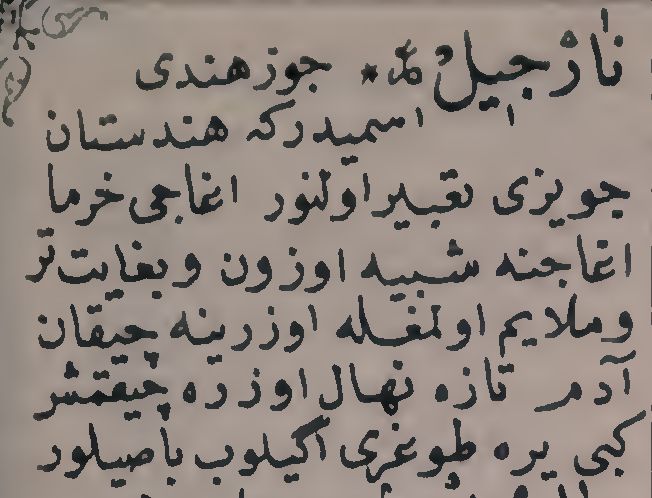 نارجيل * جوز هندى
اسميدركه هندستان
جويزى تعبير اولنور اغاجى خرما
اغاجنه شبيه اوزون وبغايت تر
وملايم اولمغله اوزرينه چيقان
آدم تازه نهال اوزره چيقمش
كبى يره طوغرى اكيلوب باصيلور